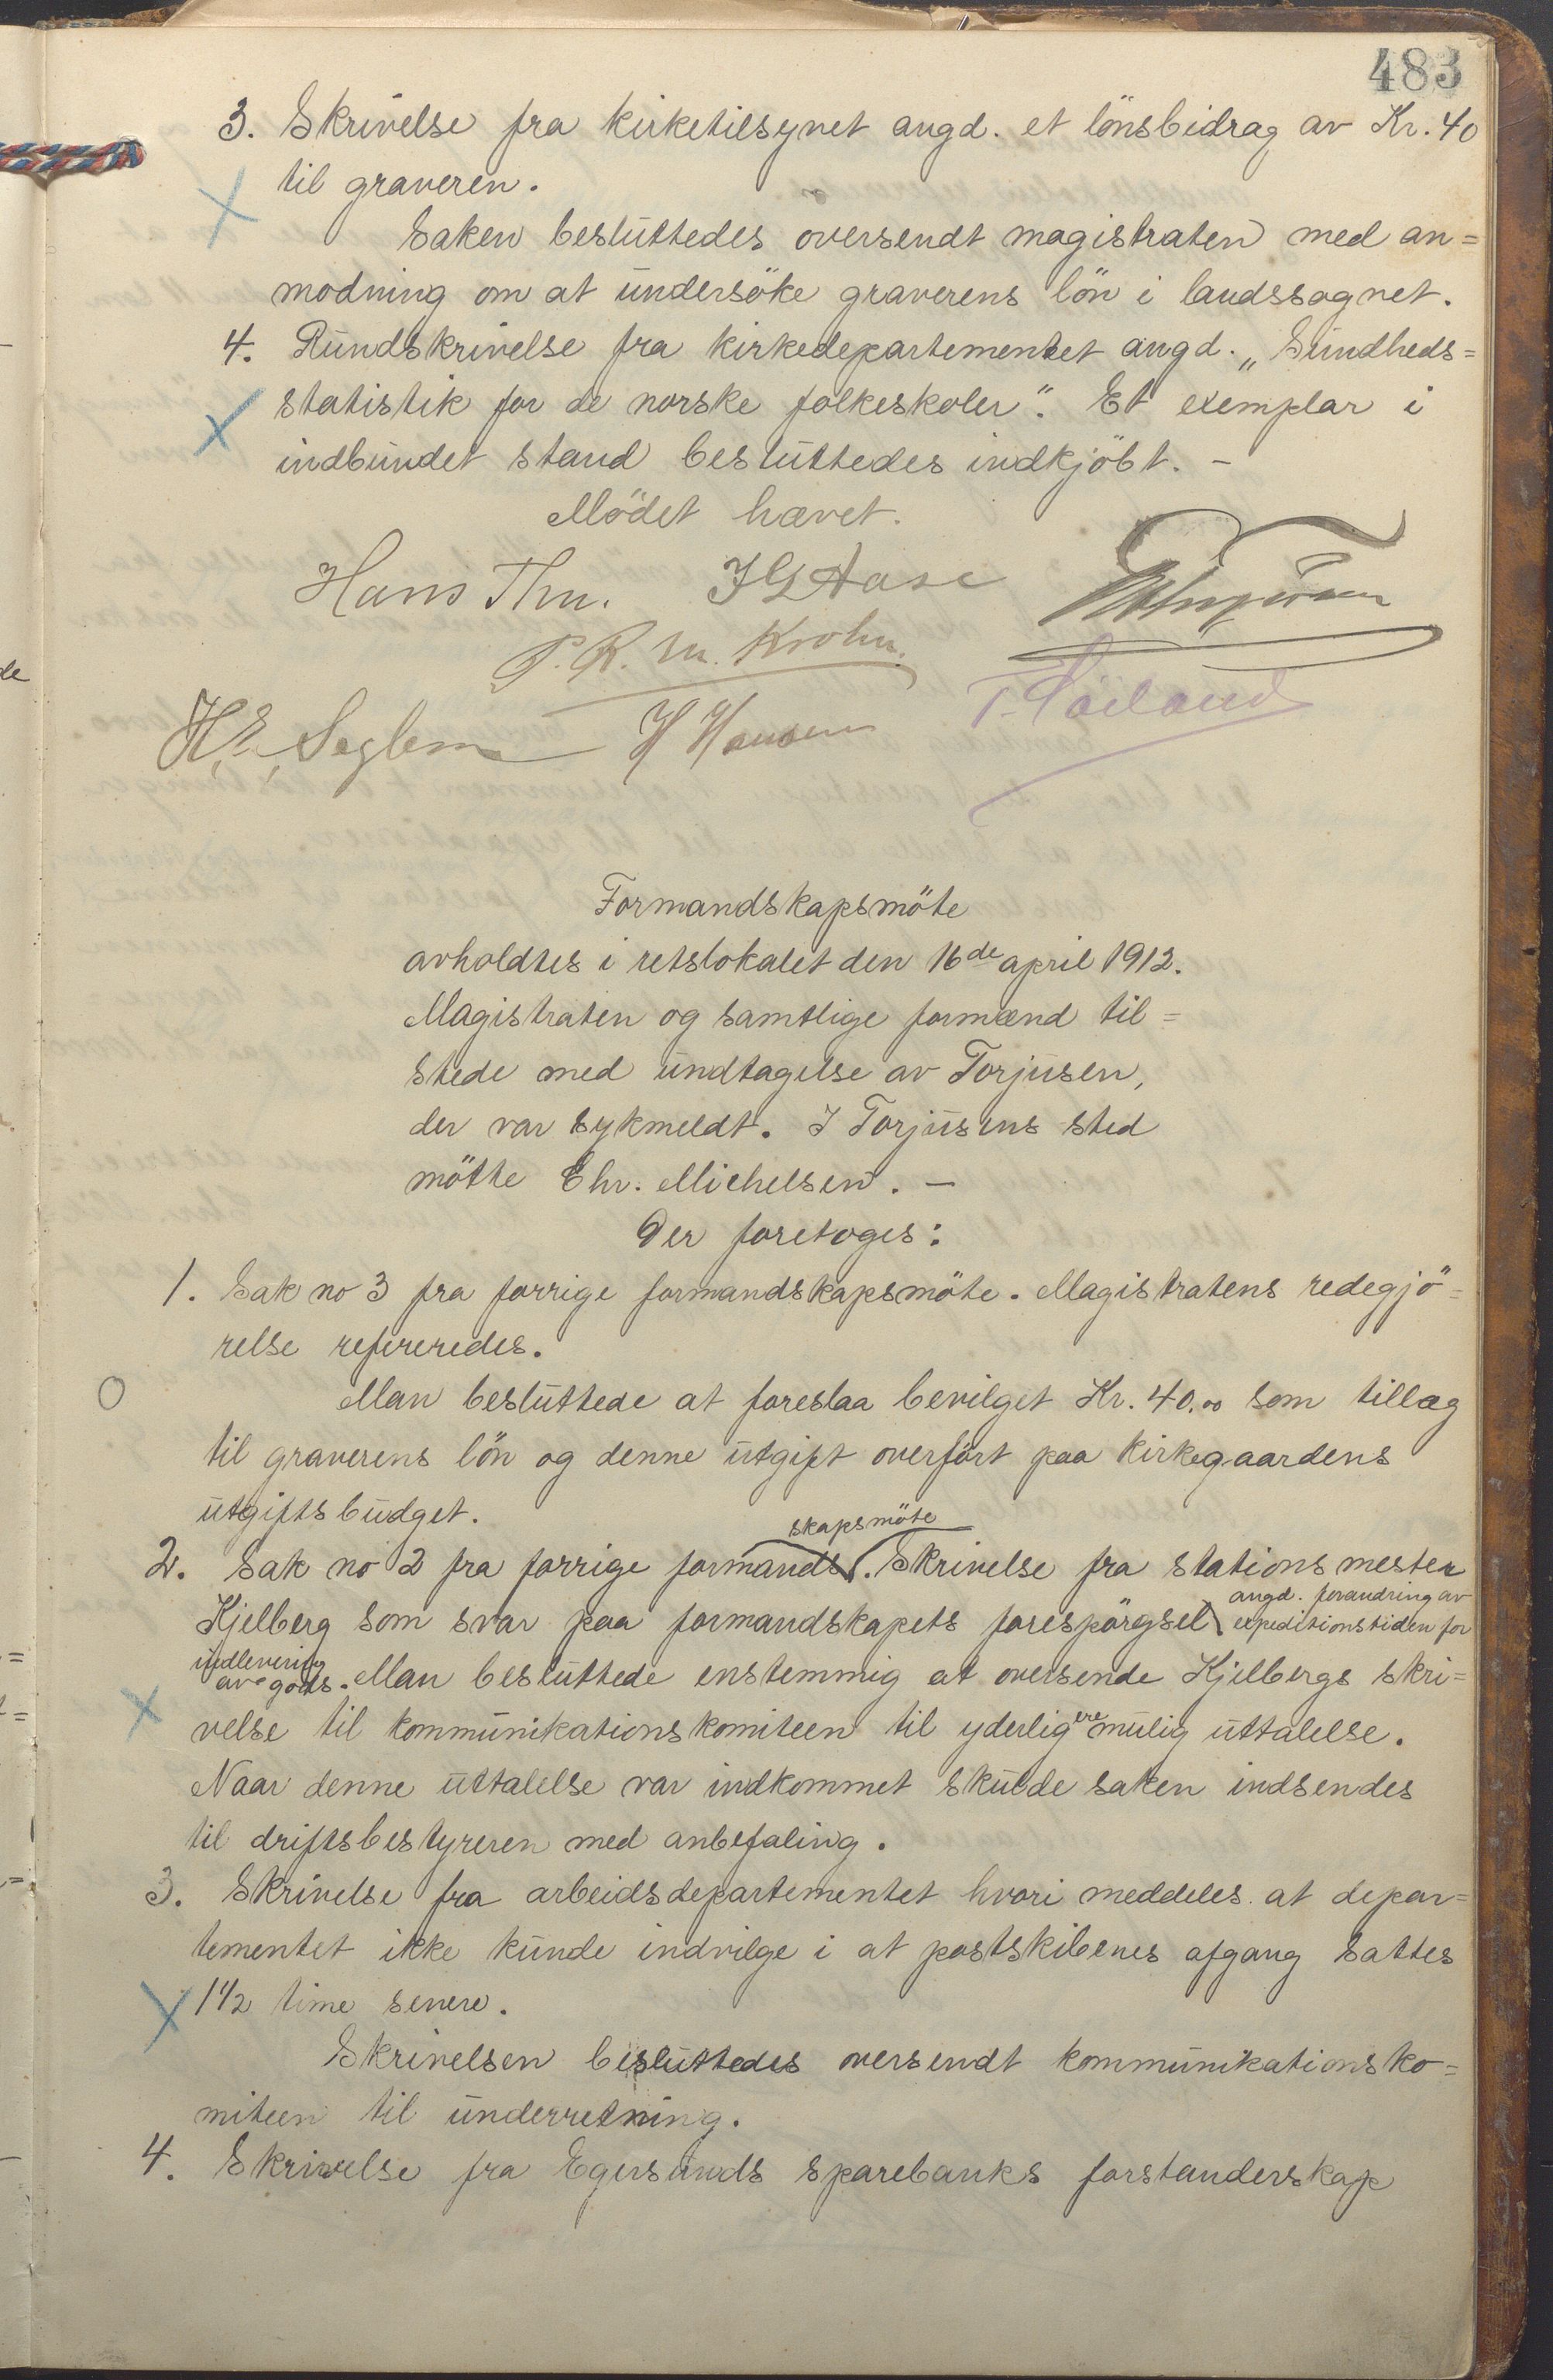 483
3. Skrivelse fra kirketilsynet angd. et lönsbidrag av Kr. 40
til graveren.
Saken besluttedes oversendt magistraten med an=
modning om at undersöke graverens lön i landssognet.
4. Rundskrivelse fra kirkedepartementet angd. „Sundheds=
statistik for de norske folkeskoler“. Et exemplar i
indbundet stand besluttedes indkjöbt. –
Mödet hævet.
Hans Thu. J G Aase
P. R. M. Krohn.
H. E. Seglem H Hansen
Formandskapsmöte
avholdtes i retslokalet den 16de april 1912.
Magistraten og samtlige formænd til=
stede med undtagelse av Torjusen,
der var sykmeldt. I Torjusens sted
mötte Chr. Michelsen. –
Der foretoges:
1. Sak no 3 fra forrige formandskapsmöte. Magistratens redegjö=
relse refereredes.
Man besluttede at foreslaa bevilget Kr. 40.00 som tillæg
til graverens lön og denne utgift overfört paa kirkegaardens
utgiftsbudget.
skapsmöte
2. Sak no 2 fra forrige formands. Skrivelse fra stationsmester
angd. forandring av
Kjelberg som svar paa formandskapets forespörgsel expeditionstiden for
indlevering
av gods. Man besluttede enstemmig at oversende Kjelbergs skri=
velse til kommunikationskomiteen til yderligere mulig uttalelse.
Naar denne uttalelse var indkommet skulde saken indsendes
til driftsbestyreren med anbefaling.
3. Skrivelse fra arbeidsdepartementet hvori meddeles at depar=
tementet ikke kunde indvilge i at postskibenes afgang sattes
1 1/2 time senere.
Skrivelsen besluttedes oversendt kommunikationsko=
miteen til underretning.
4. Skrivelse fra Egersunds sparebanks forstanderskap